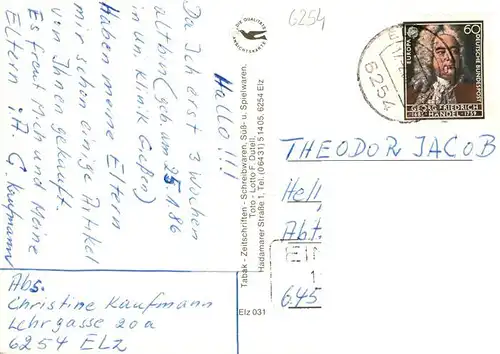 Hallo!!!
Da Ich erst 3 Wochen
alt bin (geb. am 25.1.86
in un. Klinik Gießen)
Haben meine Eltern
mir schon einige Artikel
von Ihnen gekauft.
Es freut Mich und Meine
Eltern i.A. G. Kaufmann
Abs.
Christine Kaufmann
Lehrgasse 20a
6254 ELZ
DIE QUALITÄTS
ANSICHTSKARTE
Tabak - Zeitschriften - Schreibwaren, Süß- u. Spielwaren,
Toto - Lotto F. Datell,
Hadamarer Straße 1, Tel. (06431) 51405, 6254 Elz
Elz 031
6254
6254
60
EUROPA
DEUTSCHE BUNDESPOST
GEORG FRIEDRICH
1685 HÄNDEL 1759
THEODOR JACOB
Hell
Abt.
645